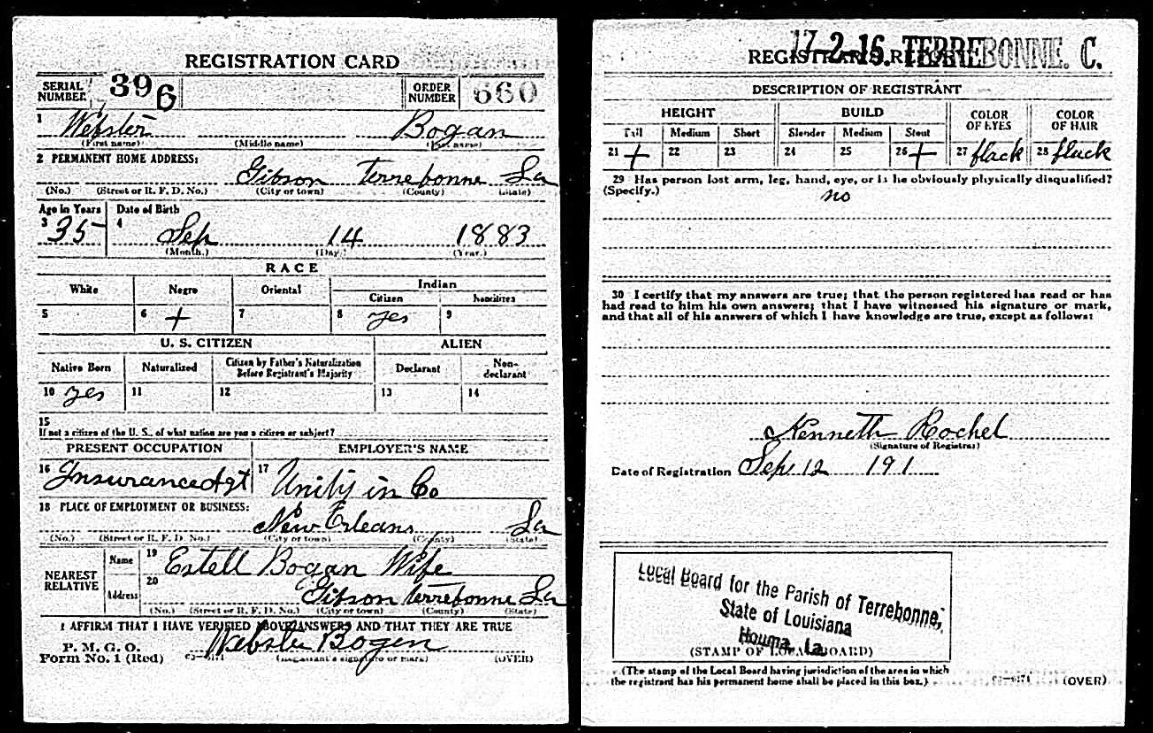 REGISTRATION CARD
SERIAL NUMBER 396 ORDER NUMBER 660
1 Webster Bogan
(First name) (Middle name) (Last name)
2 PERMANENT HOME ADDRESS:
Gibson Terrebonne La
(No.) (Street or R. F. D. No.) (City or town) (County) (State)
Age in Years Date of Birth
3 35 4 Sep 14 1883
(Month.) (Day.) (Year.)
RACE
White Negro Oriental Indian
Citizen Noncitizen
5 6 + 7 8 yes 9
U. S. CITIZEN ALIEN
Native Born Naturalized Citizen by Father's Naturalization Before Registrant's Majority Declarant Non-declarant
10 yes 11 12 13 14
15
If not a citizen of the U. S., of what nation are you a citizen or subject?
PRESENT OCCUPATION EMPLOYER'S NAME
16 Insurance Agt 17 Unity in Co
18 PLACE OF EMPLOYMENT OR BUSINESS:
New Orleans La
(No.) (Street or R. F. D. No.) (City or town) (County) (State)
NEAREST RELATIVE Name 19 Estell Bogan Wife
Address 20 Gibson Terrebonne La
(No.) (Street or R. F. D. No.) (City or town) (County) (State)
I AFFIRM THAT I HAVE VERIFIED ABOVE ANSWERS AND THAT THEY ARE TRUE
P. M. G. O.
Form No. 1 (Red) Webster Bogen
(Registrant's signature or mark) (OVER)
17-2-16. TERREBONNE. C.
DESCRIPTION OF REGISTRANT
HEIGHT BUILD COLOR OF EYES COLOR OF HAIR
Tall Medium Short Slender Medium Stout
21 + 22 23 24 25 26 + 27 black 28 black
29 Has person lost arm, leg, hand, eye, or is he obviously physically disqualified?
(Specify.) no
30 I certify that my answers are true; that the person registered has read or has
had read to him his own answers; that I have witnessed his signature or mark,
and that all of his answers of which I have knowledge are true, except as follows:
Kenneth Rochel
(Signature of Registrar)
Date of Registration Sep 12 191
Local Board for the Parish of Terrebonne,
State of Louisiana
Houma, La.
(STAMP OF LOCAL BOARD)
(The stamp of the Local Board having jurisdiction of the area in which
the registrant has his permanent home shall be placed in this box.)
(OVER)